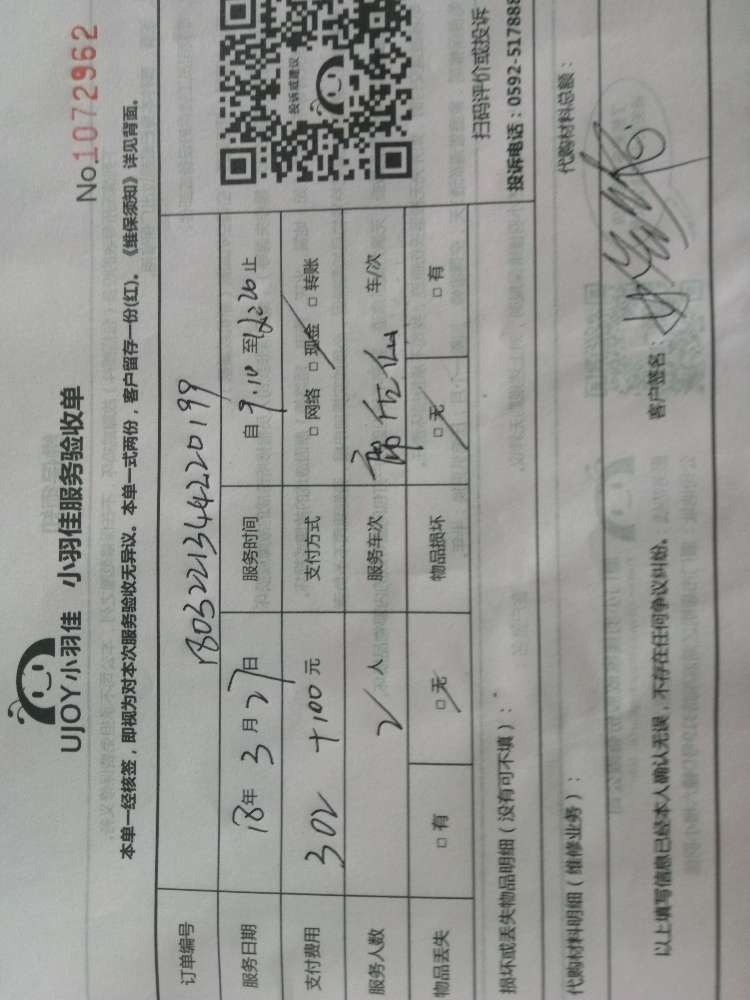 UJOY小羽佳 小羽佳服务验收单
No.1072962
本单一经核签，即视为对本次服务验收无异议。本单一式两份，客户留存一份(红)。《维保须知》详见背面。
订单编号 180322134422019 9
服务日期 18年3月27日 服务时间 自9.10至12:26止
支付费用 302 +100元 支付方式 □网络 □现金 □转账
服务人数 2人 服务车次 车/次
物品丢失 □有 □无 物品损坏 □无 □有
投诉或建议
扫码评价或投诉
损坏或丢失物品明细（没有可不填）：
投诉电话：0592-517888
代购材料明细（维修业务）：
代购材料总额：
以上填写信息已经本人确认无误，不存在任何争议纠纷。
客户签名：